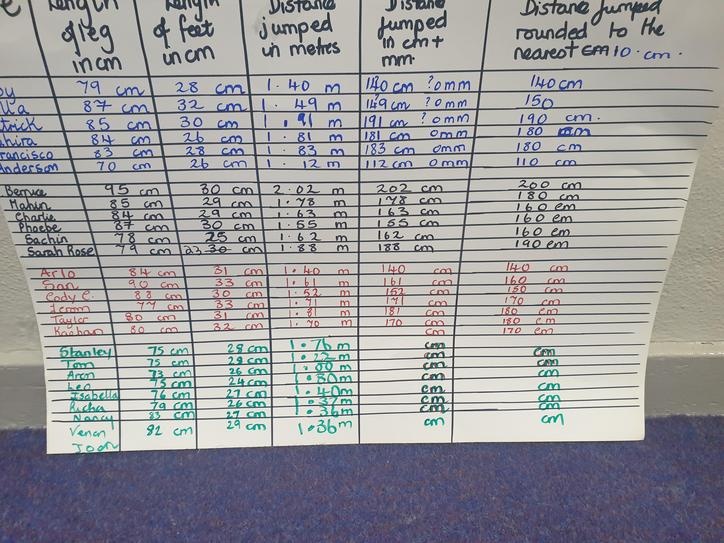 Length of leg in cm Length of feet in cm Distance jumped in metres Distance jumped in cm + mm. Distance jumped rounded to the nearest cm 10 cm.
79 cm 28 cm 1.40 m 140 cm ?0mm 140 cm
87 cm 32 cm 1.49 m 149 cm ?0mm 150
trick 85 cm 30 cm 1.91 m 191 cm ?0mm 190 cm.
hira 84 cm 26 cm 1.81 m 181 cm 0mm 180 mm
rancisco 83 cm 28 cm 1.83 m 183 cm 0mm 180 cm
Anderson 70 cm 26 cm 1.12 m 112 cm 0mm 110 cm
95 cm 30 cm 2.02 m 202 cm 200 cm
Mahin 85 cm 29 cm 1.78 m 178 cm 180 cm
Charlie 84 cm 29 cm 1.63 m 163 cm 160 cm
Phoebe 87 cm 30 cm 1.55 m 155 cm 160 cm
Sachin 78 cm 25 cm 1.62 m 162 cm 160 cm
Sarah Rose 79 cm 23.30 cm 1.88 m 188 cm 190 cm
Arlo 84 cm 31 cm 1.40 m 140 cm 140 cm
San 90 cm 33 cm 1.61 m 161 cm 160 cm
Cody C. 88 cm 30 cm 1.52 m 152 cm 150 cm
77 cm 33 cm 1.71 m 171 cm 170 cm
Taylor 80 cm 31 cm 1.81 m 181 cm 180 cm
80 cm 32 cm 1.70 m 170 cm 180 cm
170 cm
Stanley 75 cm 28 cm 1.76 m cm cm
Tom 75 cm cm 1.22 m cm cm
Aron 73 cm 26 cm m cm cm
Leo 75 cm 24 cm 1.80 m cm cm
Isabella 76 cm 27 cm 1.40 m cm cm
Richa 79 cm 26 cm 1.37 m cm cm
Nancy 83 cm 27 cm 1.36 m cm cm
82 cm 29 cm 1.36 m cm cm